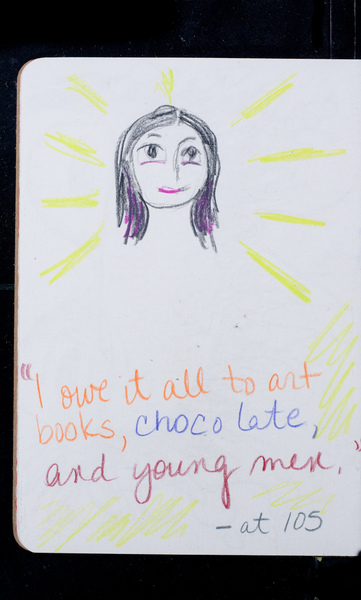 "I owe it all to art
books, chocolate,
and young men."
- at 105